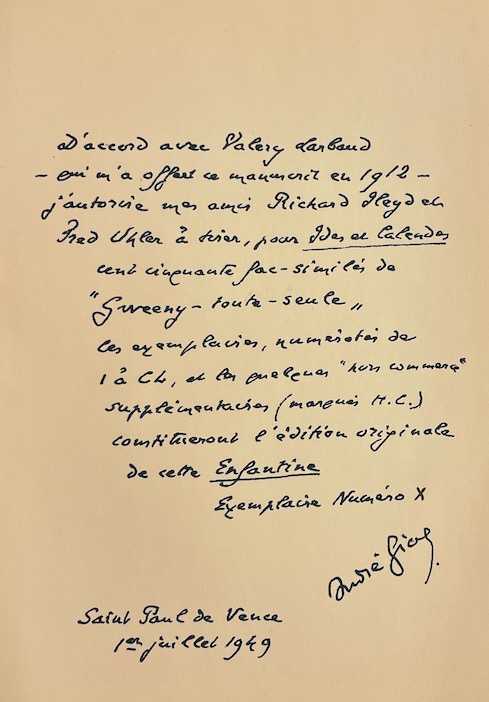 D'accord avec Valery Larbaud
- qui m'a offert ce manuscrit en 1912 -
j'autorise mes amis Richard Heyd et
Fred Uhler à tirer, pour Ides et Calendes
cent cinquante fac-similés de
"Gwenny-toute-seule"
les exemplaires, numérotés de
1 à CL, et les quelques "hors commerce"
supplémentaires (marqués H.C.)
constitueront l'édition originale
de cette Enfantine
Exemplaire Numéro X
André Gide
Saint Paul de Vence
1er juillet 1949